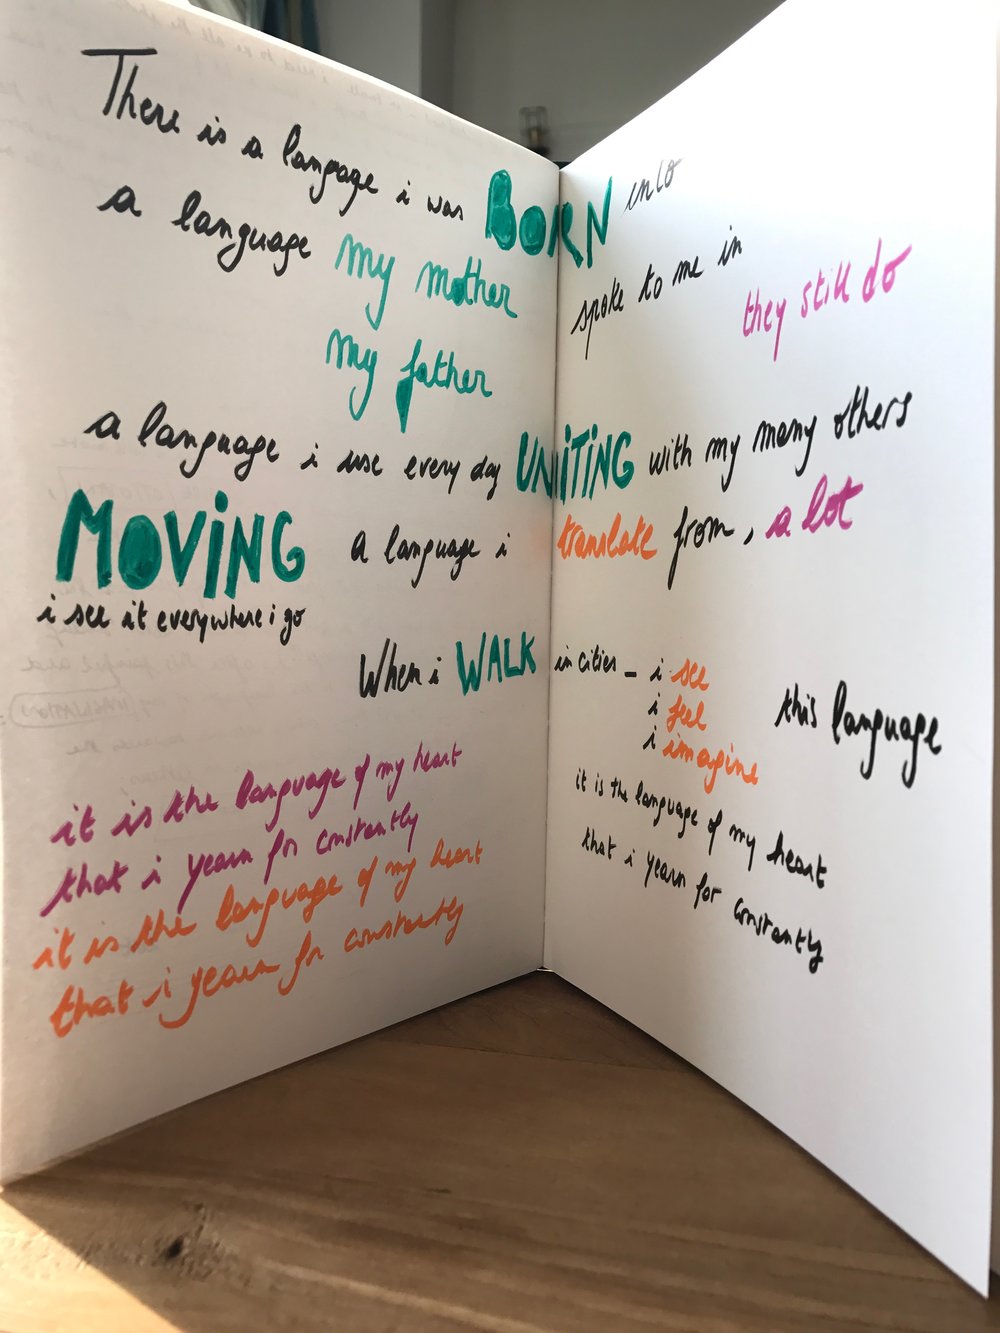 There is a language i was BORN into
a language my mother spoke to me in
my father they still do
a language i use every day UNITING with my many others
MOVING a language i translate from, a lot
i see it everywhere i go
When i WALK in cities _ i see
i feel this language
i imagine
it is the language of my heart
that i yearn for constantly
it is the language of my heart
that i yearn for constantly
it is the language of my heart
that i yearn for constantly